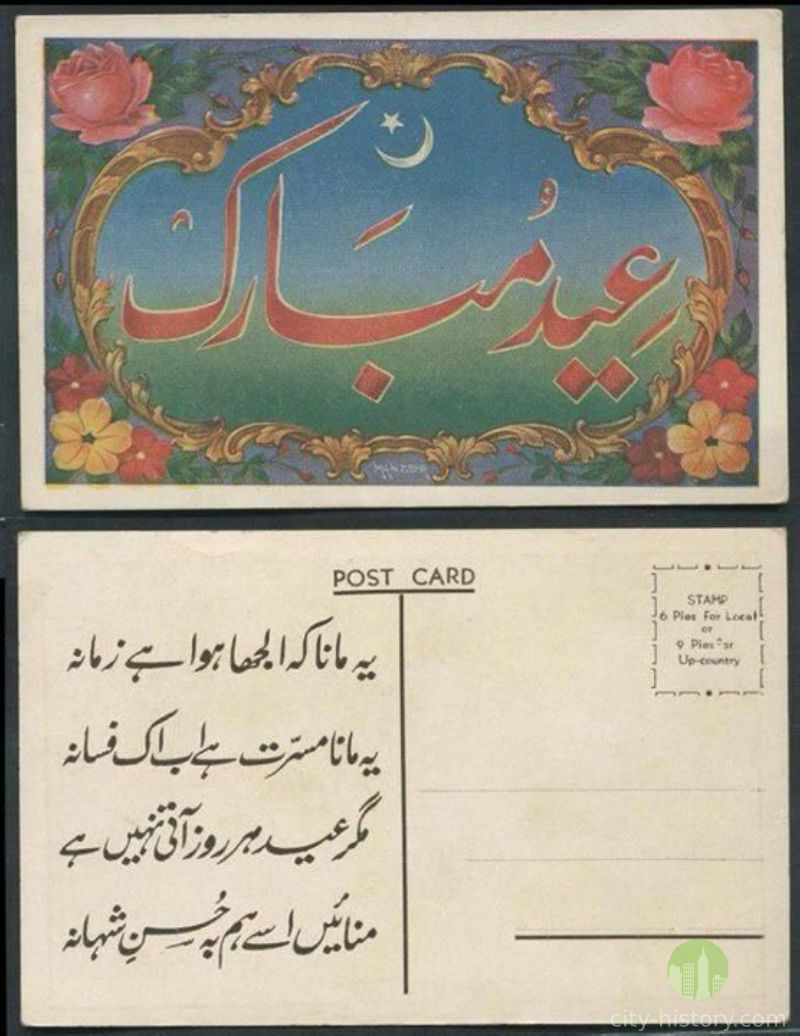 عید مُبَارک
MANZAR
POST CARD
STAMP
6 Pies for Local
or
9 Pies for
Up-country
یہ مانا کہ الجھا ہوا ہے زمانہ
یہ مانا مسرّت ہے اب اک فسانہ
مگر عید ہر روز آتی نہیں ہے
منائیں اسے ہم بہ حُسنِ شہانہ
city-history.com